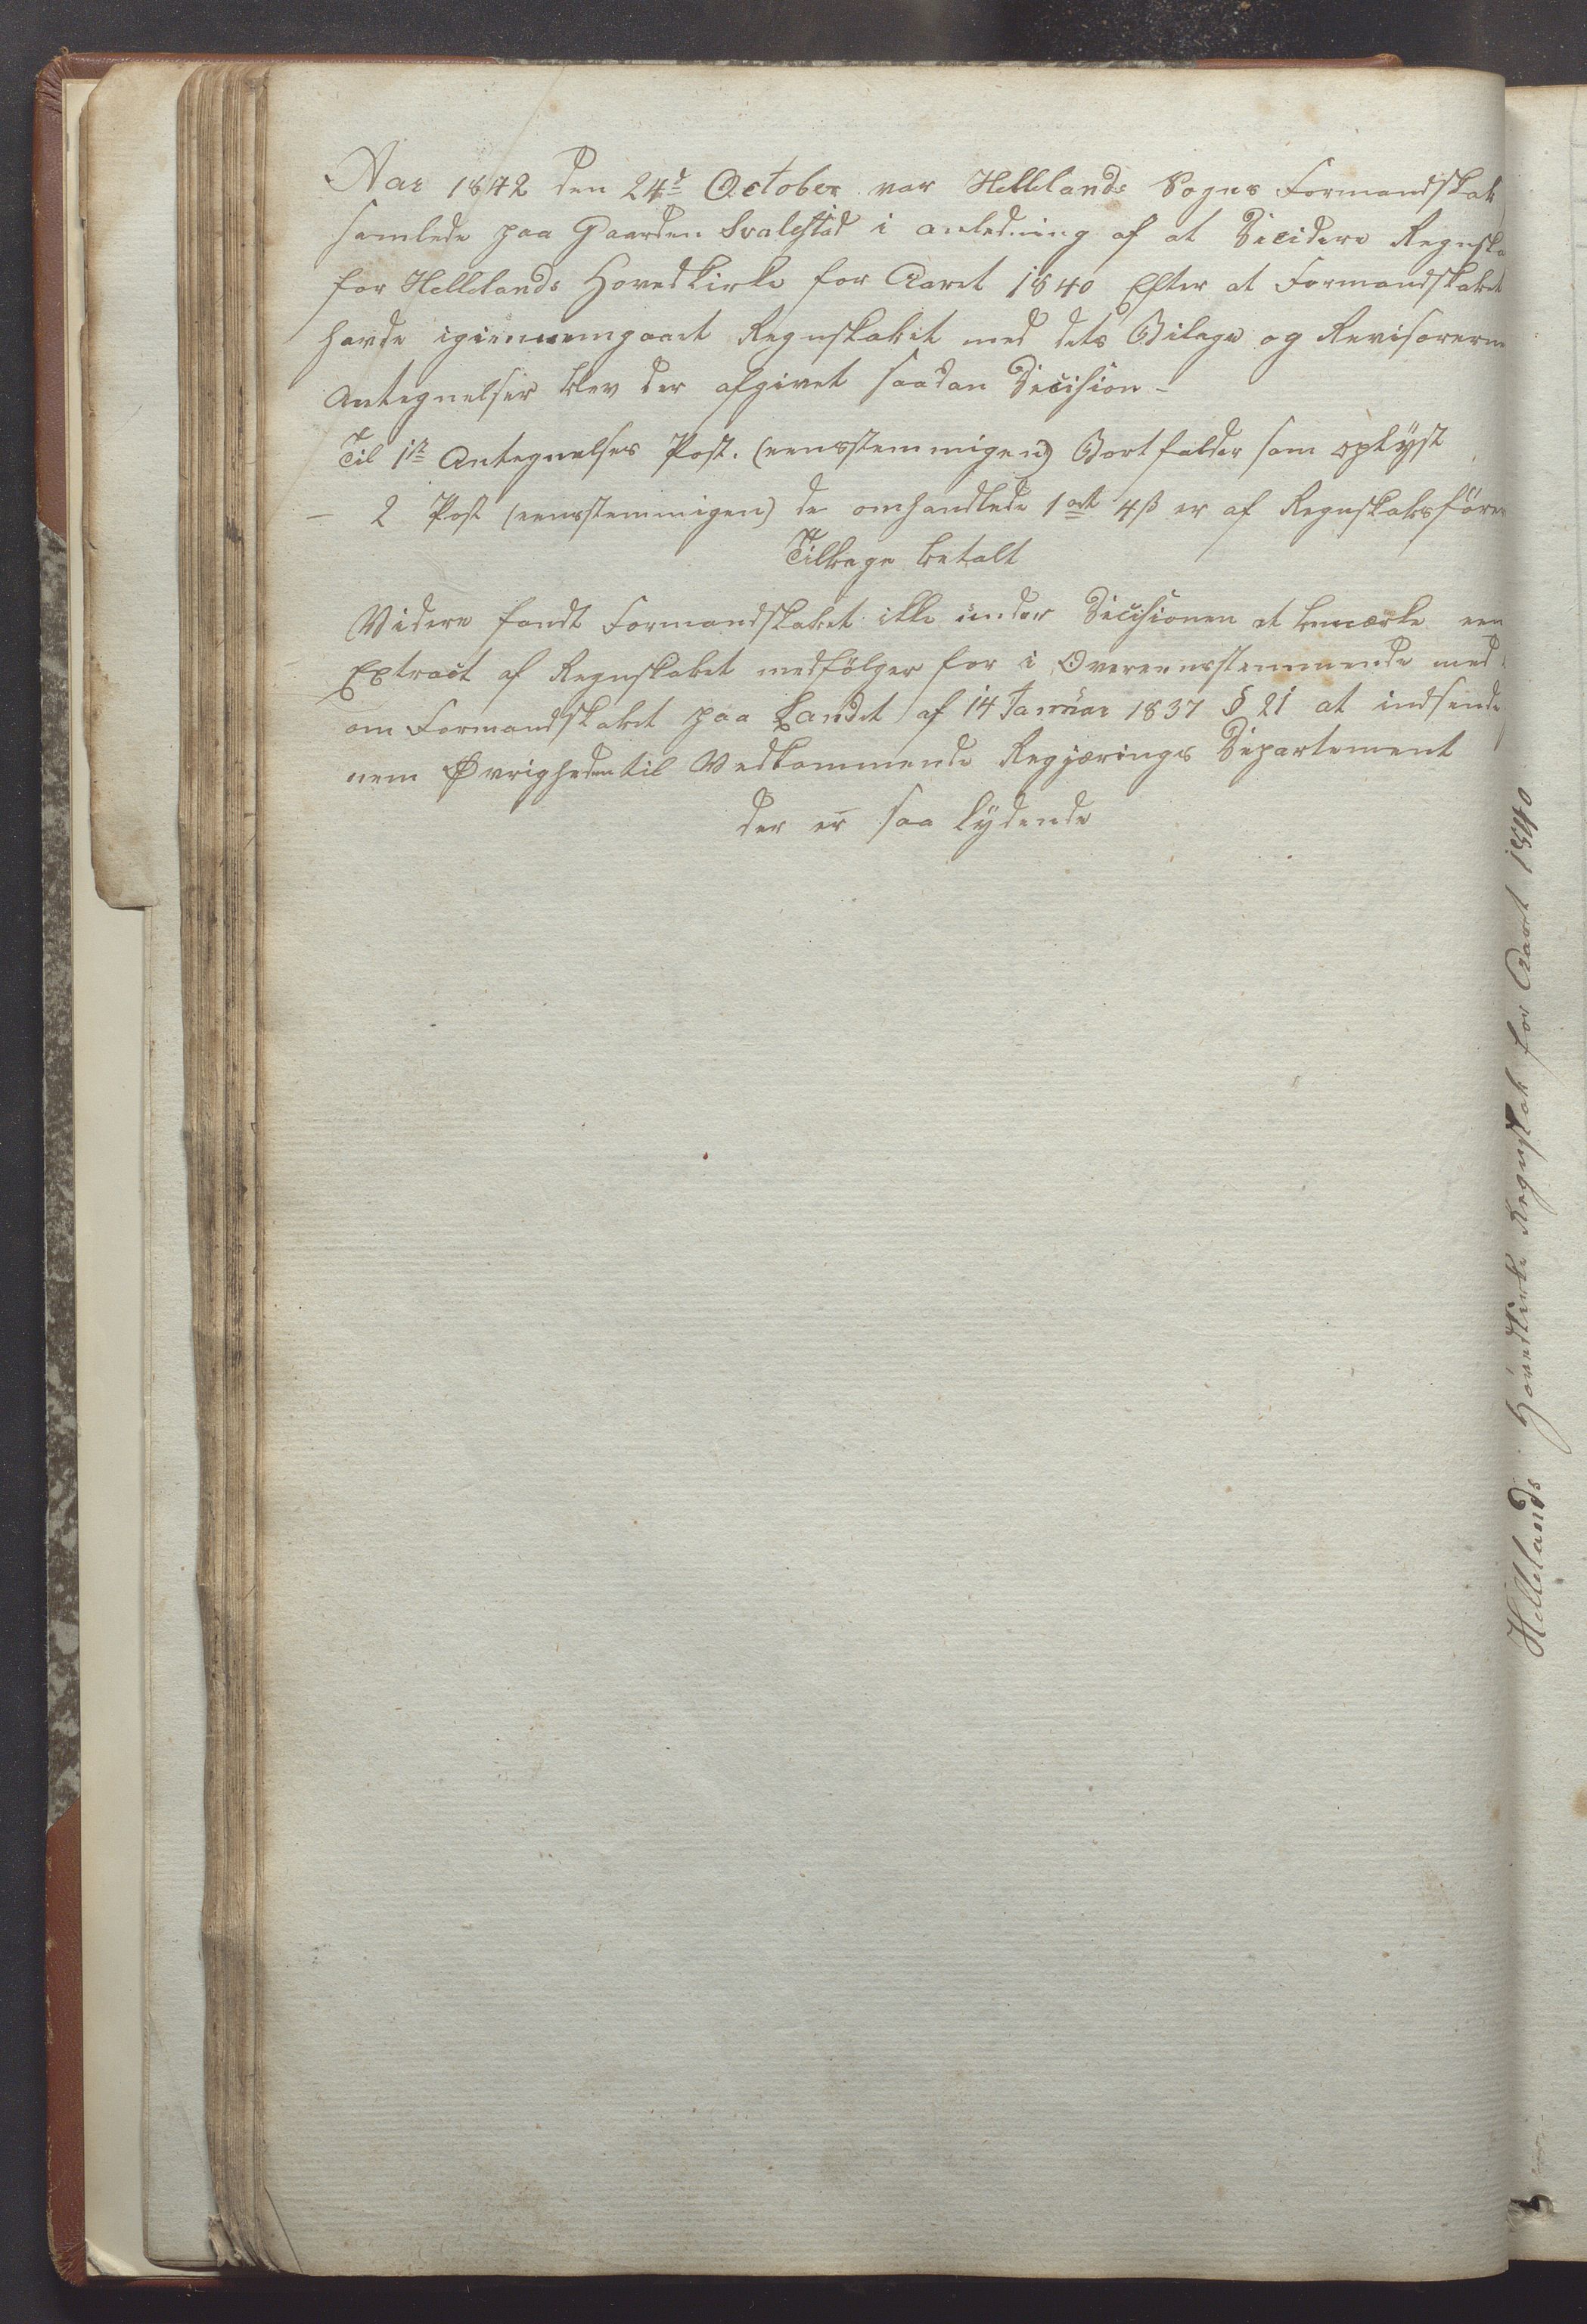 Aar 1842 den 24d October var Hellelands Sogns Formandskab
samlede paa Gaarden Svalestad i anledning af at Decidere Regnska
for Hellelands Hovedkirke for Aaret 1840 Efter at Formandskabet
havde igiennemgaaet Regnskabet med dets Bilage og Revisorerne
Antegnelser blev der afgivet saadan Decision –
Til 1te Antegnelses Post. (eensstemmigen) Bortfalder som oplÿst
– 2 Post (eensstemmigen) de omhandlede 1 ort 4 ß er af Regnskabsföre
Tilbage betalt
Videre fandt Formandskabet ikke under Decisionen at bemærke een
Extract af Regnskabet medfölger for i Overeensstemmende med
om Formandskabet paa Landet af 14 Januar 1837 § 21 at indsende
nem Øvrigheden til Vedkommende Regjærings Departement
der er saa lÿdende
Hellelands Hovedkirke Regnskab for Aaret 1840